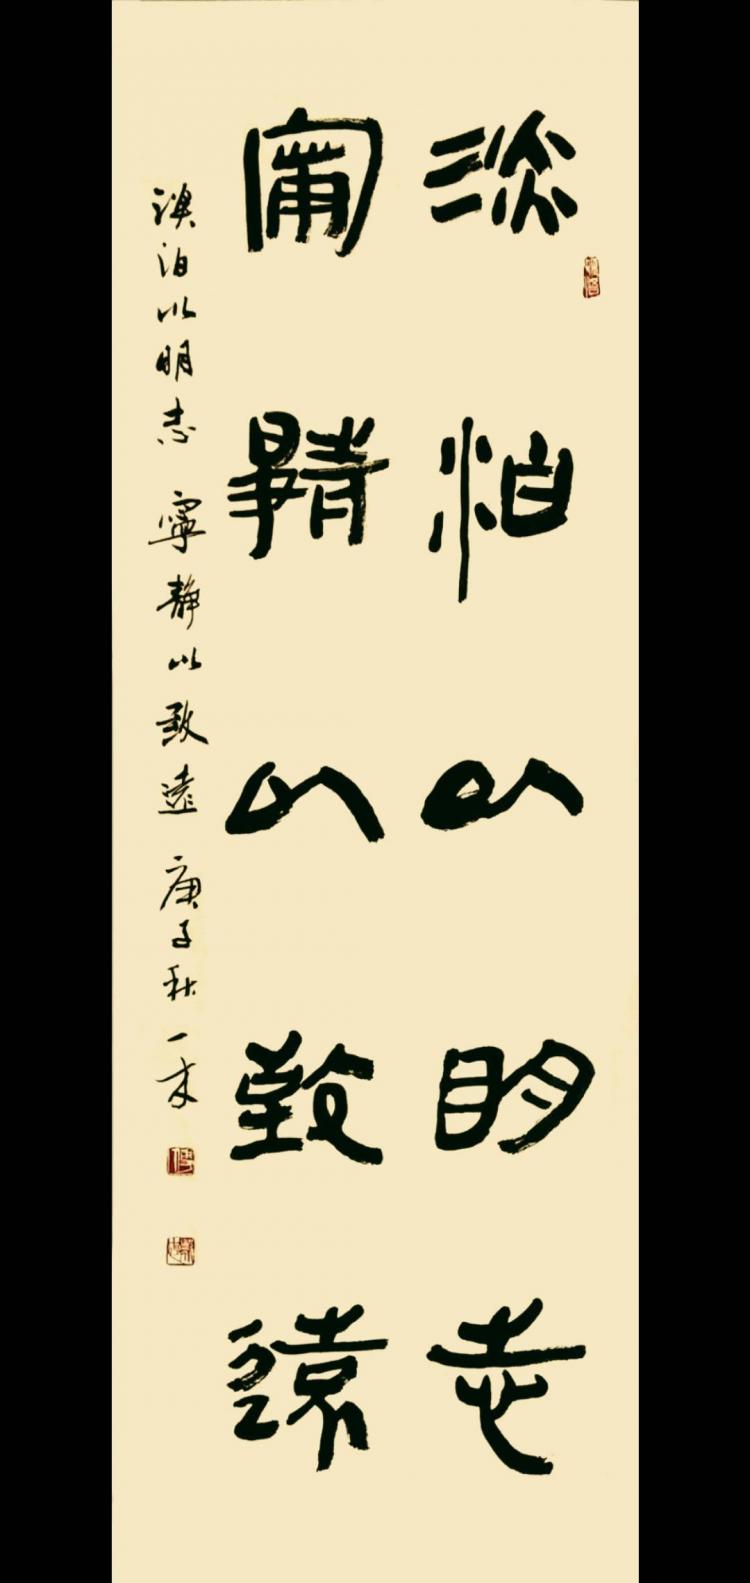 淡泊以明志
寧靜以致遠
淡泊以明志 寧靜以致遠 庚子秋 一木